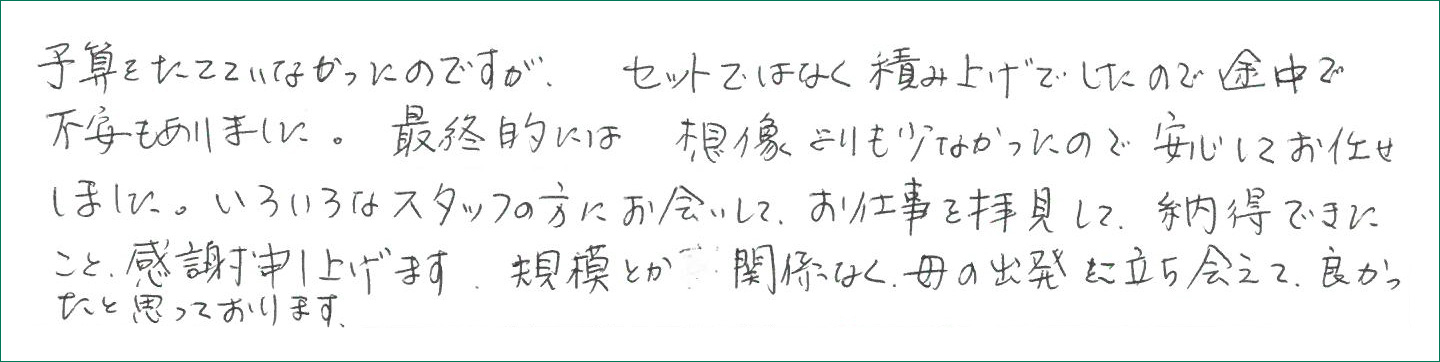 予算をたてていなかったのですが、 セットではなく積み上げでしたので途中で
不安もありました。 最終的には 想像よりも少なかったので安心してお任せ
しました。いろいろなスタッフの方にお会いして、お仕事を拝見して、納得できた
こと、感謝申し上げます、規模とか 関係なく、母の出発に立ち会えて、良かっ
たと思っております、